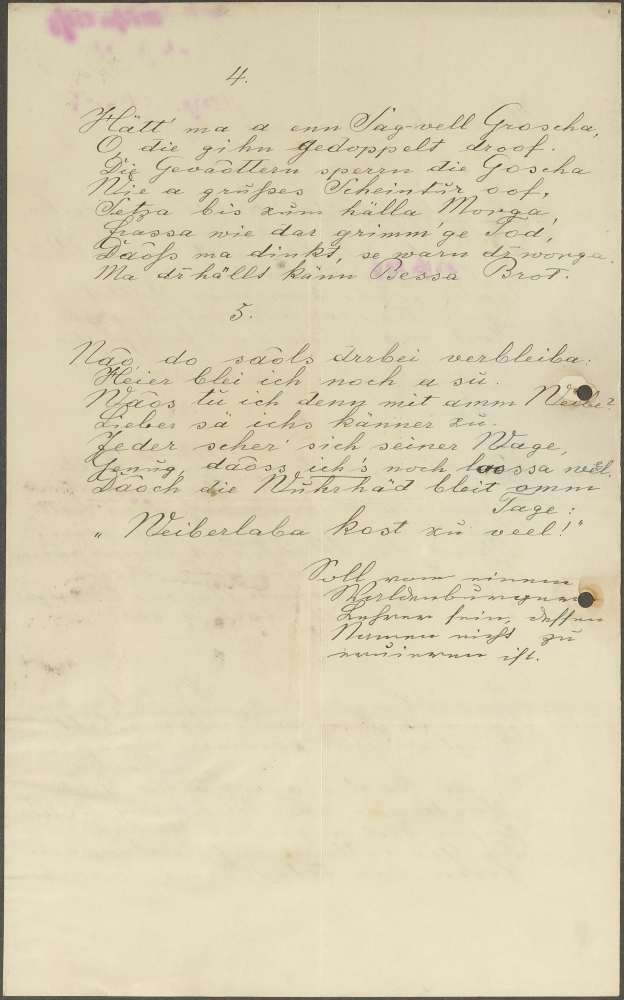 4.
Hätt' ma a enn Sag-vell Groscha,
O, die gihn gedoppelt droof.
Die Gevaôttern sperrn die Goscha
Wie a grußes Scheintûr oof,
Setza bis zum hälla Morga,
Frassa wie dar grimm'ge Tod,
Daôß ma dinkt, se warn dr̄worga.
Ma dr̄hällt känn Bessa Brot.
5.
Nao, do saôls drrbei verbleiba:
Heier blei ich noch a sû.
Waos tu ich denn mit amm Weibe?
Lieber sä ichs känner zu.
Jeder scher' sich seiner Wage,
Genug, daôss ich's noch loossa wel.
Daôch die Wuhrhäd bleit amm
Tage:
„Weiberlaba kost zu veel!"
Soll von einem
Waldenburger
Lehrer sein, dessen
Namen nicht zu
eruieren ist.